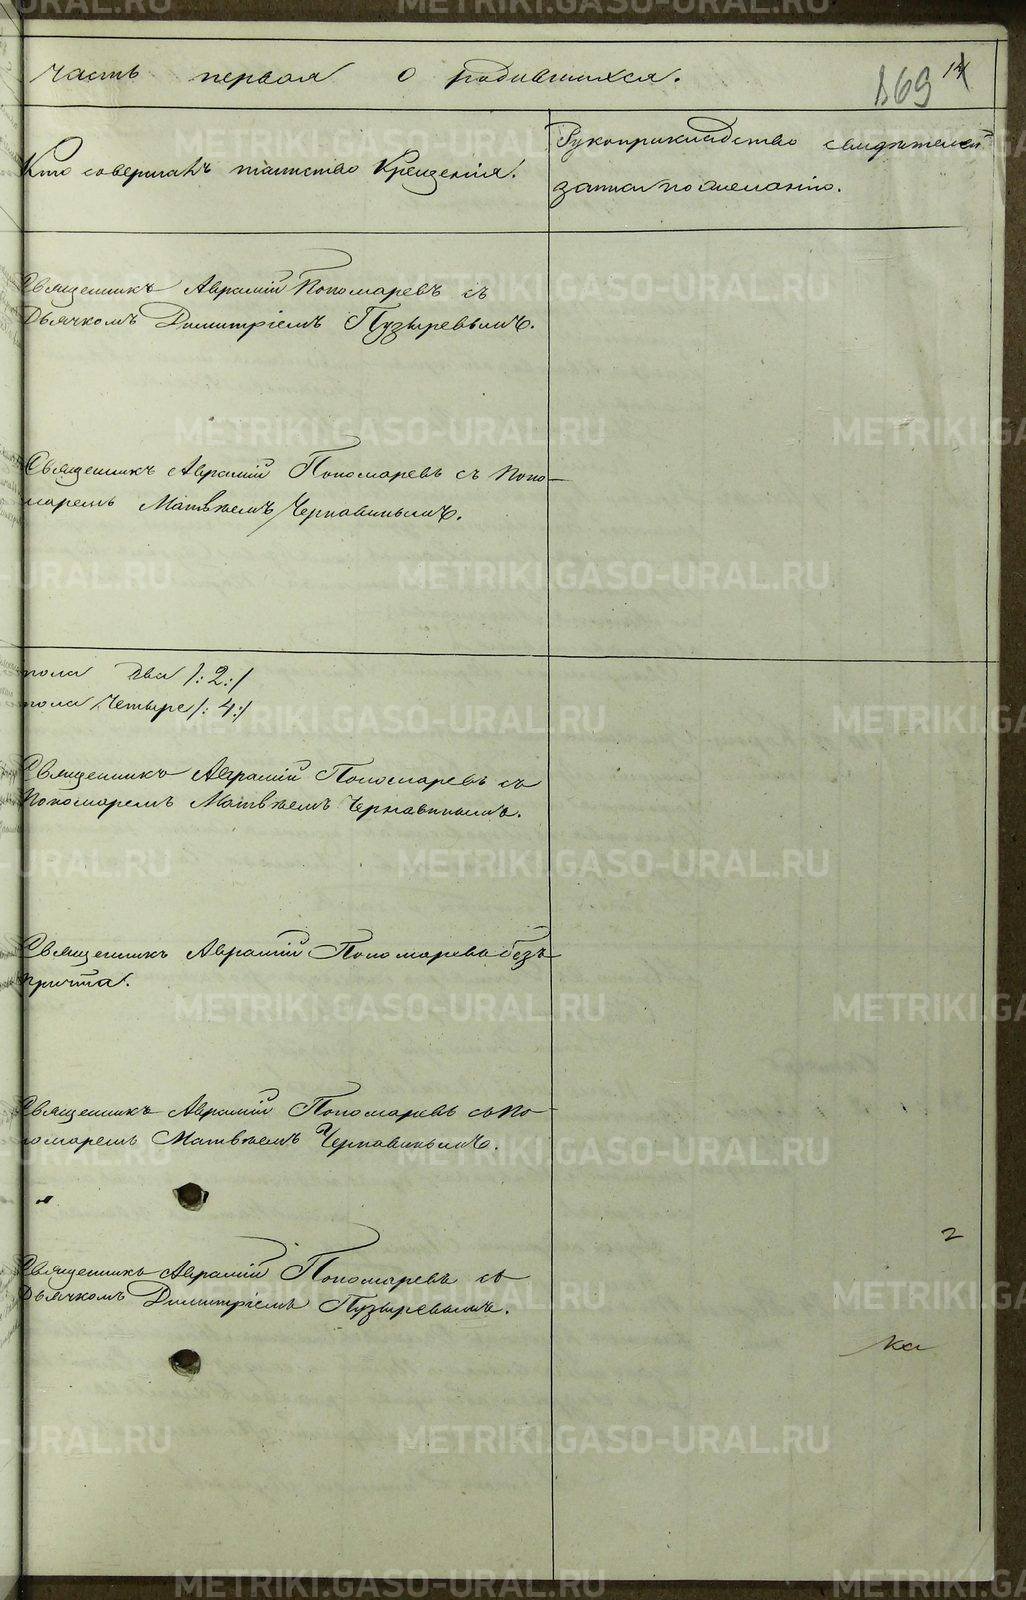 часть первая о родившихся.
169 14
Кто совершалъ таинство Крещенія.
Рукоприкладство свидѣтелей
записи по желанію.
Священникъ Аврамій Пономаревъ съ
Дьячкомъ Димитріемъ Пузыревымъ.
Священникъ Аврамій Пономаревъ съ Поно-
маремъ Матвѣемъ Чернавинымъ.
пола два /:2:/
пола Четыре /:4:/
Священникъ Аврамій Пономаревъ съ
Пономаремъ Матвѣемъ Чернавинымъ.
Священникъ Аврамій Пономаревъ безъ
причта.
Священникъ Аврамій Пономаревъ съ По-
номаремъ Матвѣемъ Чернавинымъ.
2
Священникъ Аврамій Пономаревъ съ
Дьячкомъ Димитріемъ Пузыревымъ.
ка
METRIKI.GASO-URAL.RU